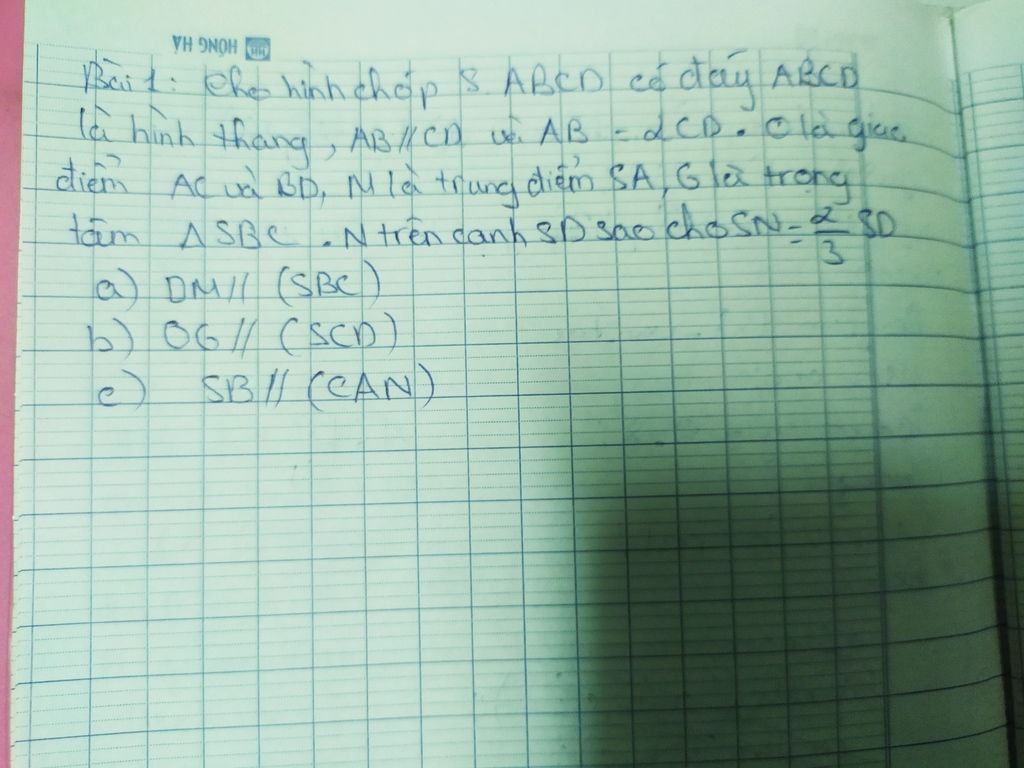 HONG HA
Bài 1: Cho hình chóp S. ABCD có đáy ABCD
là hình thang, AB // CD và AB = 2CD. O là giao
điểm AC và BD, M là trung điểm SA, G là trọng
tâm ΔSBC. N trên cạnh SD sao cho SN = 2/3 SD
a) DM // (SBC)
b) OG // (SCD)
c) SB // (CAN)